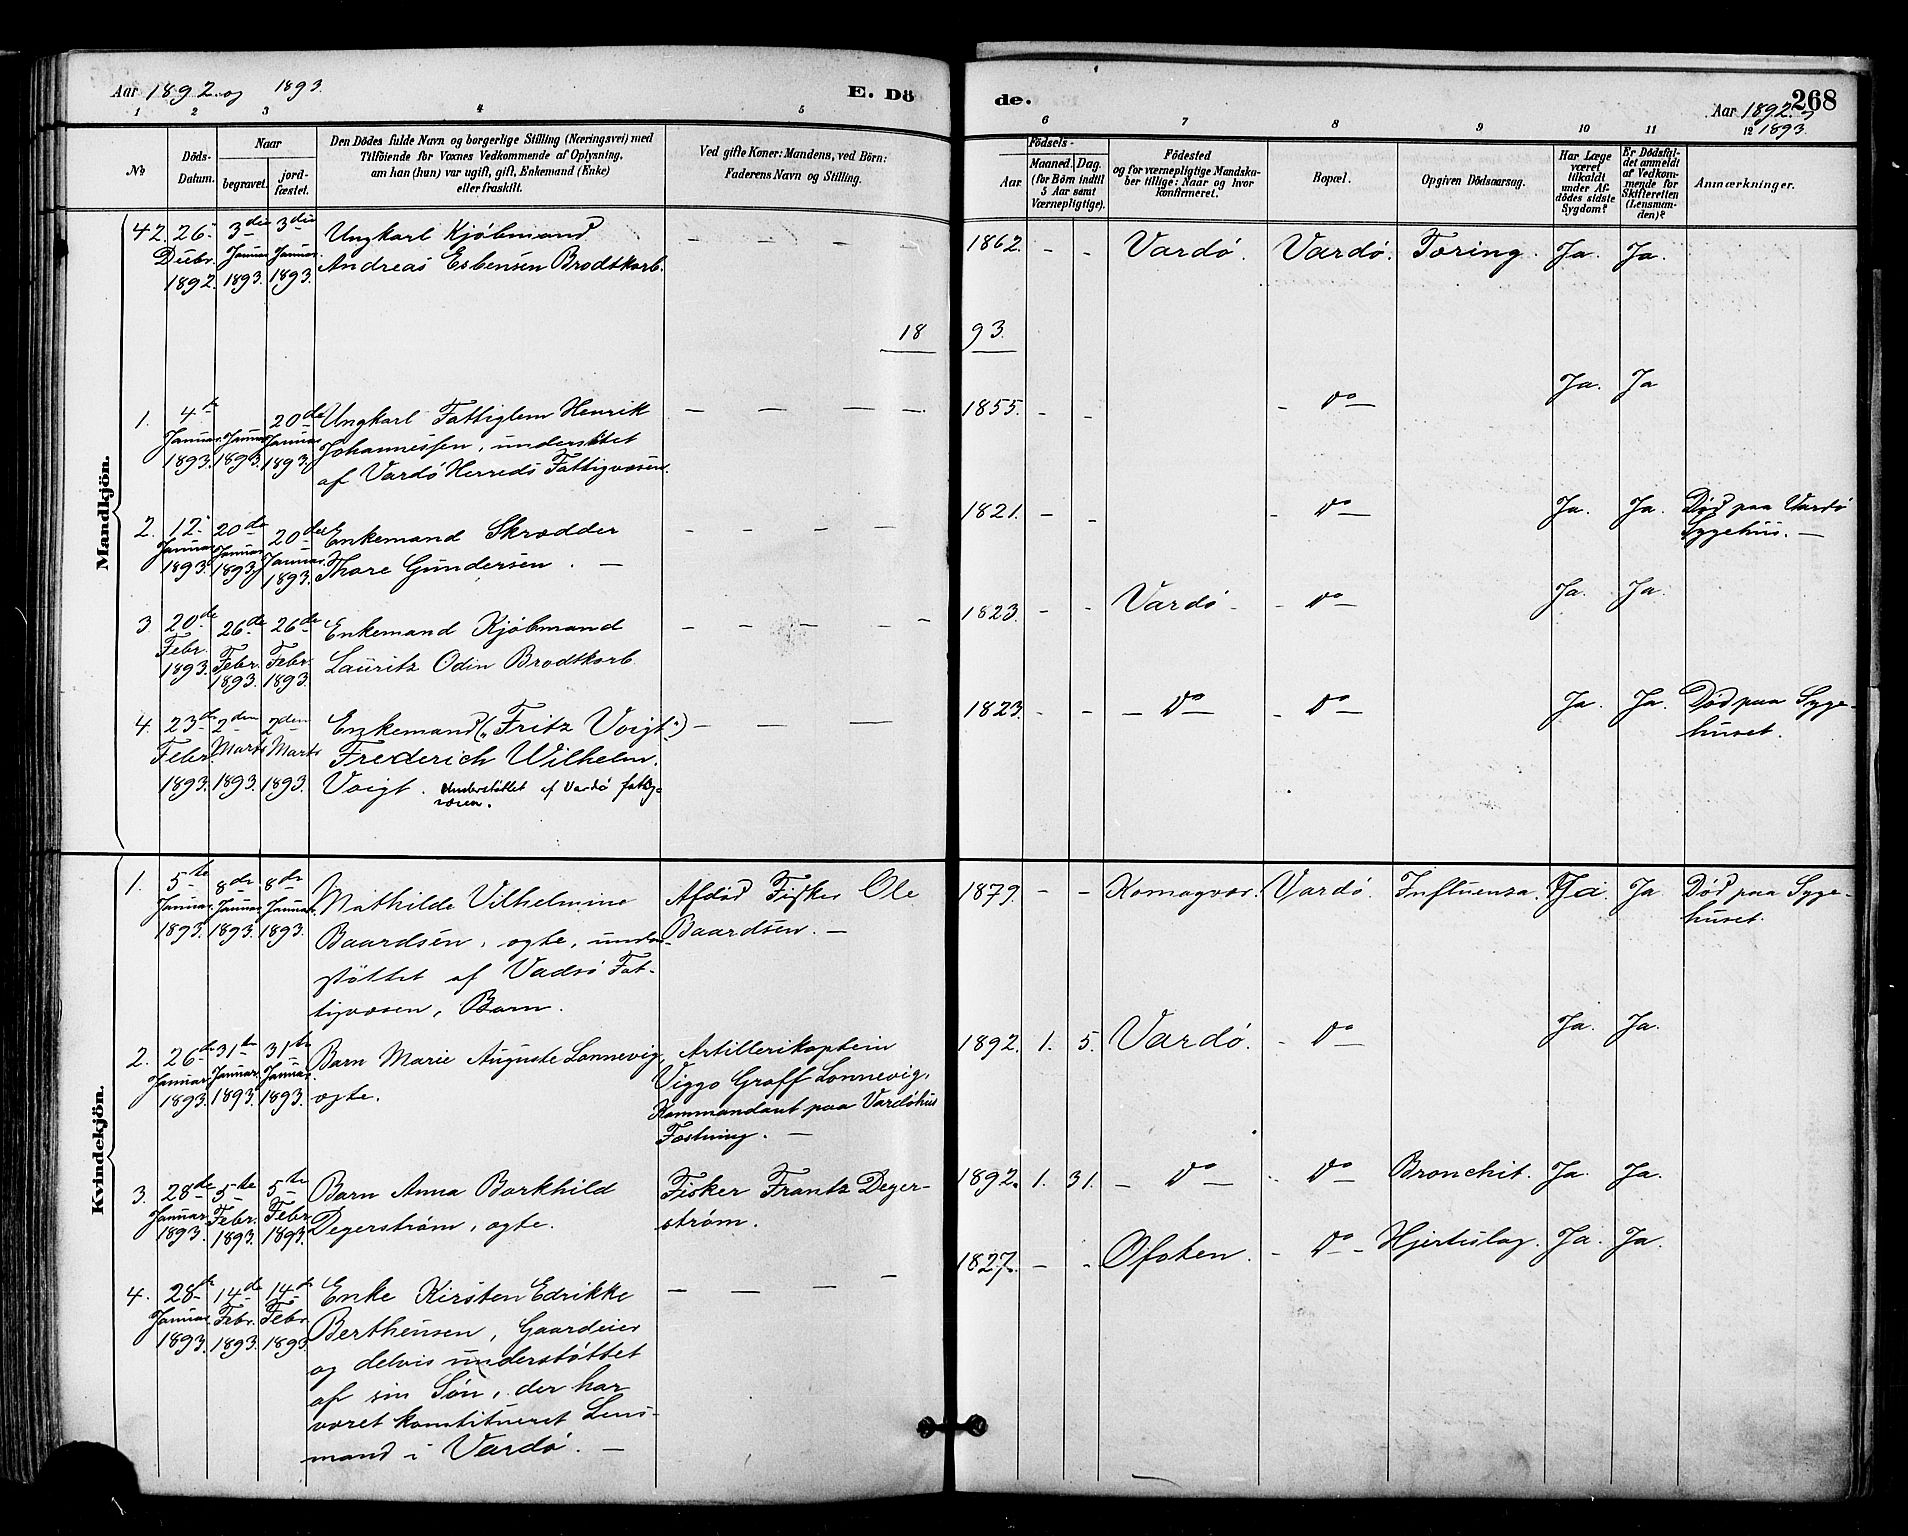 Aar 1892 og 1893.
E. Dö
de.
268
Aar 1892 og
1893.
1 2 3 4 5 6 7 8 9 10 11 12
No
Döds-
Datum.
Naar
begravet.
jord-
fæstet.
Den Dödes fulde Navn og borgerlige Stilling (Næringsvei) med
Tilföiende for Voxnes Vedkommende af Oplysning,
om han (hun) var ugift, gift, Enkemand (Enke)
eller fraskilt.
Ved gifte Koner: Mandens, ved Börn:
Faderens Navn og Stilling.
Födsels-
Aar.
Maaned.
Dag.
(for Börn indtil
5 Aar samt
Værnepligtige).
Födested
og for værnepligtige Mandska-
ber tillige: Naar og hvor
konfirmeret.
Bopæl.
Opgiven Dödsaarsag.
Har Læge
været
tilkaldt
under Af-
dödes sidste
Sygdom?
Er Dödsfal-
det anmeldt
af Vedkom-
mende for
Skifteretten
(Lensman-
den)?
Anmærkninger.
Mandkjön.
42. 26 Decbr. 1892. 3die Januar 1893. 3die Januar 1893.
Ungkarl Kjøbmand
Andreas Esbensen Brodtkorb.
1862. - - Vardø. Vardø. Tæring. Ja. Ja.
1893.
1. 4de Januar 1893. Januar 1893. 20de Januar 1893.
Ungkarl Fattiglem Henrik
Johannessen, understøttet
af Vardø Herreds Fattigvæsen.
1855. - - - Do - Ja. Ja
2. 12 Januar 1893. 20de Januar 1893. 20de Januar 1893.
Enkemand Skrædder
Thore Gundersen. —
1821. - - - Do - Ja. Ja. Død paa Vardø
Sygehus. —
3 20de Febr. 1893. 26de Febr. 1893. 26de Febr. 1893.
Enkemand Kjøbmand
Lauritz Odin Brodtkorb
1823. - - Vardø - - Do - Ja. Ja.
4. 23de Febr. 1893. 2den Marts 1893. 2den Marts 1893.
Enkemand („Fritz Voigt“)
Frederich Wilhelm
Voigt. understøttet af Vardø fattig-
væsen.
1823. - - - Do - - Do - Ja. Ja. Død paa Syge-
huset.
Kvindekjön.
1. 5te Januar 1893. 8de Januar 1893. 8de Januar 1893.
Mathilde Vilhelmine
Baardsen, ægte, under-
støttet af Vadsø Fat-
tigvæsen, Barn.
Afdød Fisker Ole
Baardsen. —
1879. - - Komagvær. Vardø. Influenza. Ja. Ja. Død paa Syge-
huset.
2. 26de Januar 1893. 31te Januar 1893. 31te Januar 1893.
Barn Marie Auguste Lonnevig,
ægte.
Artillerikaptein
Viggo Graff Lonnevig,
Kommandant paa Vardøhus
Fæstning. —
1892. 1. 5. Vardø. - Do - Ja. Ja.
3. 28de Januar 1893. 5te Febr. 1893. 5te Febr. 1893.
Barn Anna Borkhild
Degerstrøm, ægte.
Fisker Frantz Deger-
strøm.
1892. 1. 31. - Do - - Do - Bronchit. Ja. Ja.
4. 28de Januar 1893. 14de Febr. 1893. 14de Febr. 1893
Enke Kirsten Edrikke
Berthensen, Gaardeier
og delvis understøttet
af sin Søn, der har
været konstitueret Lens-
mand i Vardø. —
1827. - - Ofoten. - Do - Hjerteslag. Ja. Ja.